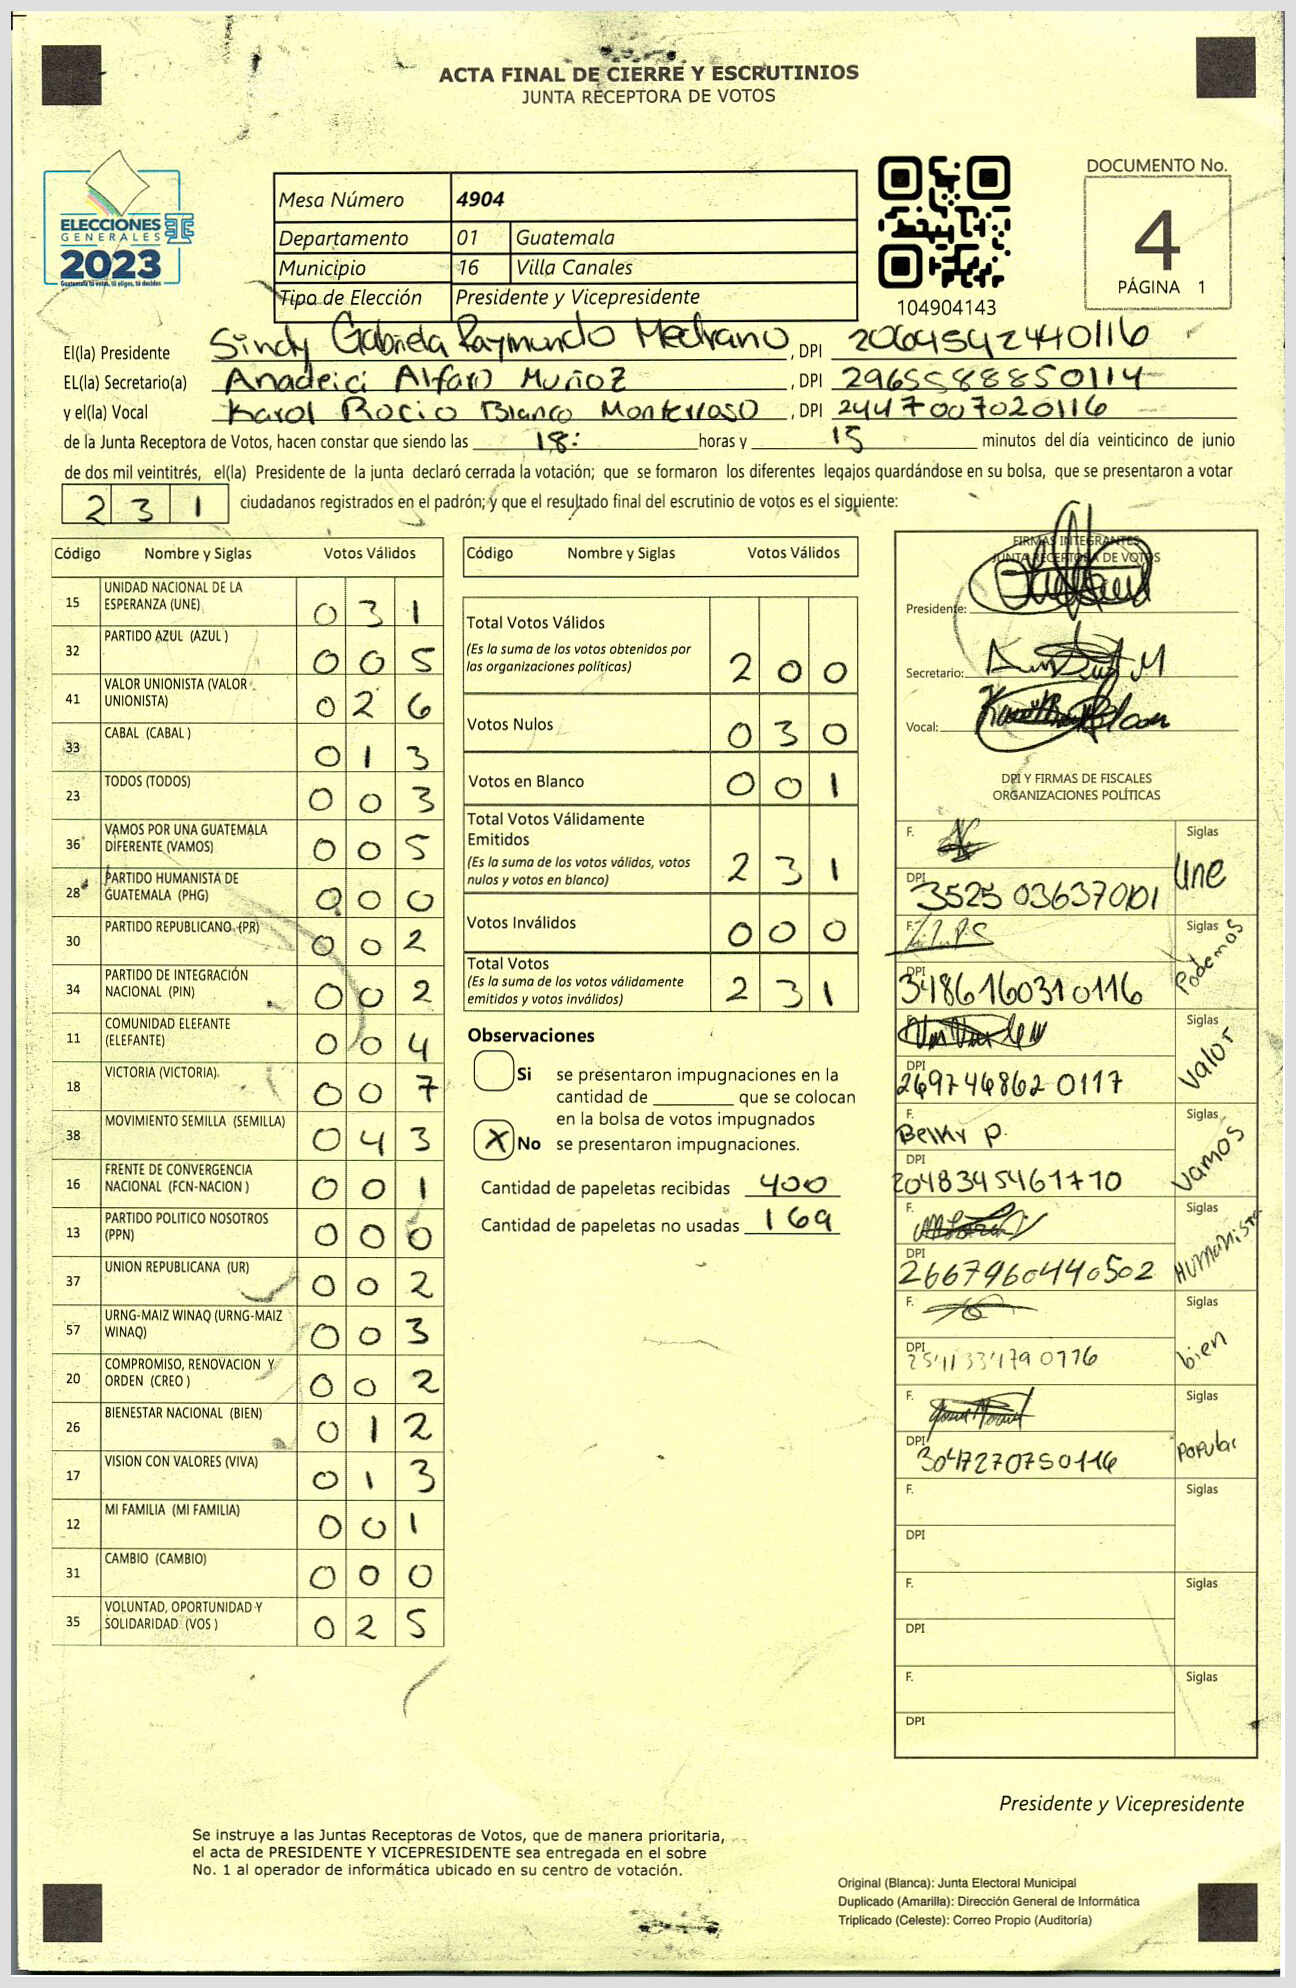 ACTA FINAL DE CIERRE Y ESCRUTINIOS
JUNTA RECEPTORA DE VOTOS
ELECCIONES
GENERALES
2023
Guatemala tú votas, tú eliges, tú decides
Mesa Número 4904
Departamento 01 Guatemala
Municipio 16 Villa Canales
Tipo de Elección Presidente y Vicepresidente
104904143
DOCUMENTO No.
4
PÁGINA 1
El(la) Presidente Sindy Gabriela Raymundo Medrano, DPI 20645942440116
EL(la) Secretario(a) Anadeici Alfaro Muñoz, DPI 2965588850114
y el(la) Vocal Karol Rocio Blanco Monterroso, DPI 2447007020116
de la Junta Receptora de Votos, hacen constar que siendo las 18: horas y 15 minutos del día veinticinco de junio
de dos mil veintitrés, el(la) Presidente de la junta declaró cerrada la votación; que se formaron los diferentes legajos quardándose en su bolsa, que se presentaron a votar
231 ciudadanos registrados en el padrón; y que el resultado final del escrutinio de votos es el siguiente:
Código Nombre y Siglas Votos Válidos
15 UNIDAD NACIONAL DE LA ESPERANZA (UNE) 031
32 PARTIDO AZUL (AZUL ) 005
41 VALOR UNIONISTA (VALOR UNIONISTA) 026
33 CABAL (CABAL ) 013
23 TODOS (TODOS) 003
36 VAMOS POR UNA GUATEMALA DIFERENTE (VAMOS) 005
28 PARTIDO HUMANISTA DE GUATEMALA (PHG) 000
30 PARTIDO REPUBLICANO (PR) 002
34 PARTIDO DE INTEGRACIÓN NACIONAL (PIN) 002
11 COMUNIDAD ELEFANTE (ELEFANTE) 004
18 VICTORIA (VICTORIA) 007
38 MOVIMIENTO SEMILLA (SEMILLA) 043
16 FRENTE DE CONVERGENCIA NACIONAL (FCN-NACION ) 001
13 PARTIDO POLITICO NOSOTROS (PPN) 000
37 UNION REPUBLICANA (UR) 002
57 URNG-MAIZ WINAQ (URNG-MAIZ WINAQ) 003
20 COMPROMISO, RENOVACION Y ORDEN (CREO ) 002
26 BIENESTAR NACIONAL (BIEN) 012
17 VISION CON VALORES (VIVA) 013
12 MI FAMILIA (MI FAMILIA) 001
31 CAMBIO (CAMBIO) 000
35 VOLUNTAD, OPORTUNIDAD Y SOLIDARIDAD (VOS ) 025
Código Nombre y Siglas Votos Válidos
Total Votos Válidos 200
(Es la suma de los votos obtenidos por
las organizaciones políticas)
Votos Nulos 030
Votos en Blanco 001
Total Votos Válidamente
Emitidos 231
(Es la suma de los votos válidos, votos
nulos y votos en blanco)
Votos Inválidos 000
Total Votos 231
(Es la suma de los votos válidamente
emitidos y votos inválidos)
Observaciones
Si se presentaron impugnaciones en la
cantidad de ________ que se colocan
en la bolsa de votos impugnados
X No se presentaron impugnaciones.
Cantidad de papeletas recibidas 400
Cantidad de papeletas no usadas 169
FIRMAS INTEGRANTES
JUNTA RECEPTORA DE VOTOS
Presidente:
Secretario:
Vocal:
DPI Y FIRMAS DE FISCALES
ORGANIZACIONES POLÍTICAS
F. Siglas une
DPI 3525 036370101
F. Siglas Podemos
DPI 3486160310116
F. Siglas Valor
DPI 269746862 0117
F. Belky P. Siglas Vamos
DPI 2048395461710
F. Siglas Humanista
DPI 2667960440502
F. Siglas bien
DPI
F. Siglas Popular
DPI 3047270750116
F. Siglas
DPI
F. Siglas
DPI
F. Siglas
DPI
Presidente y Vicepresidente
Se instruye a las Juntas Receptoras de Votos, que de manera prioritaria,
el acta de PRESIDENTE Y VICEPRESIDENTE sea entregada en el sobre
No. 1 al operador de informática ubicado en su centro de votación.
Original (Blanca): Junta Electoral Municipal
Duplicado (Amarilla): Dirección General de Informática
Triplicado (Celeste): Correo Propio (Auditoría)